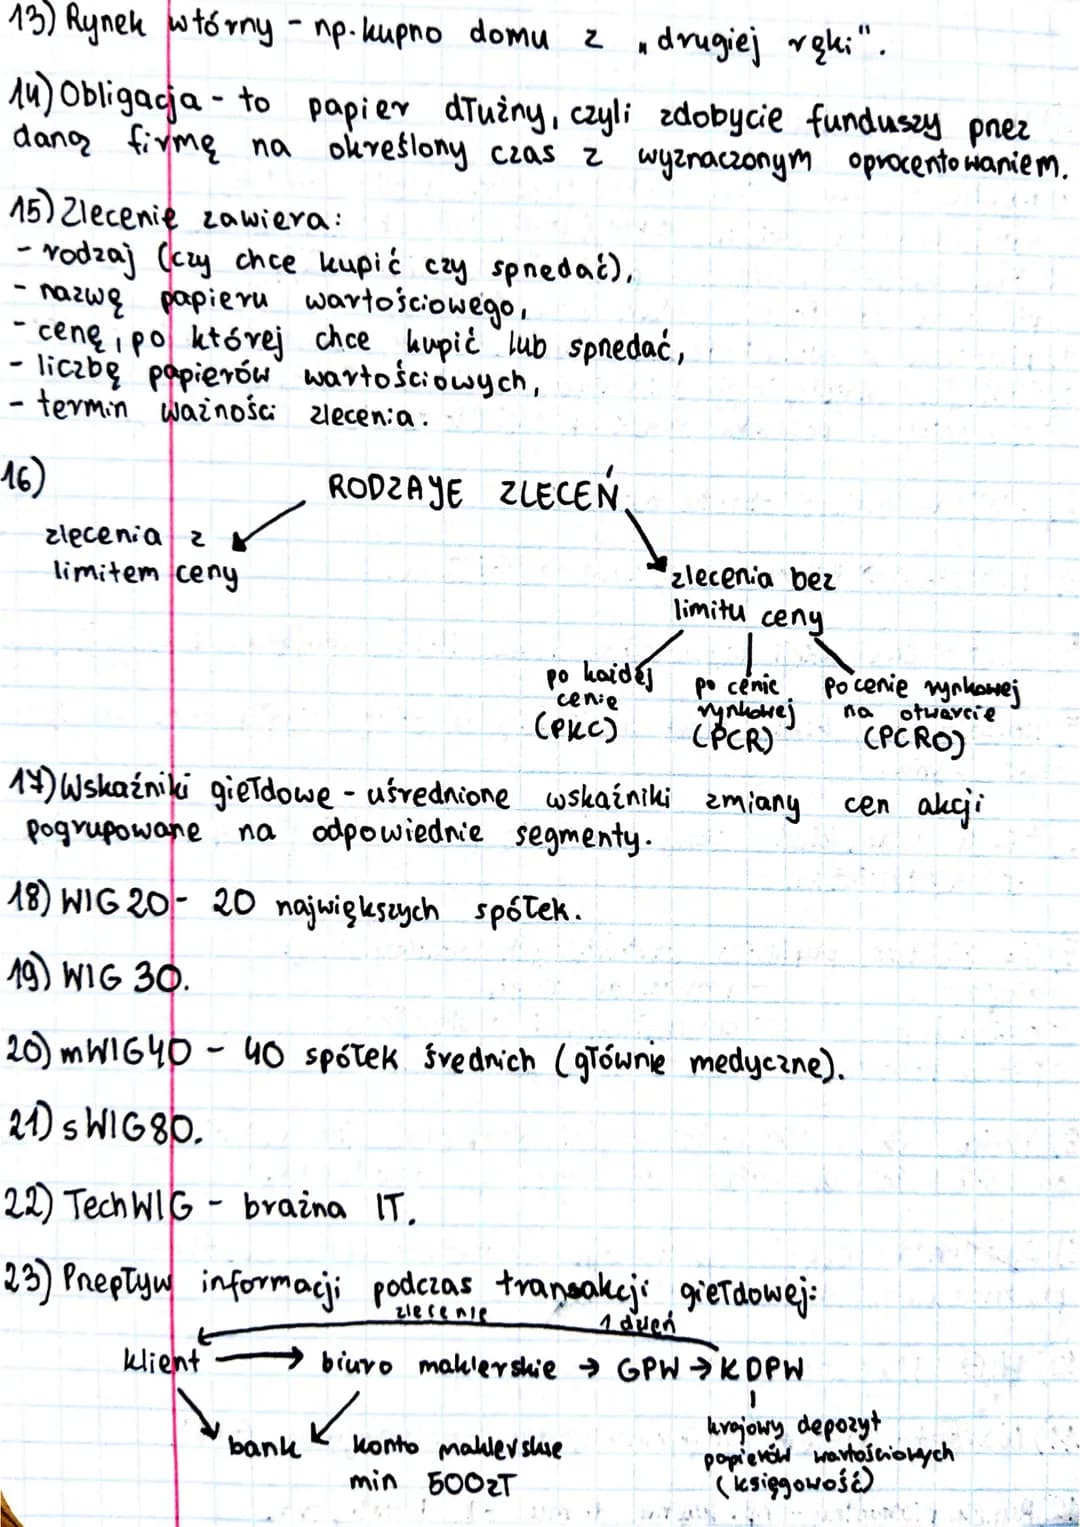 13) Rynek wtórny - np. kupno domu z „drugiej ręki".
14) Obligacja - to papier dłużny, czyli zdobycie funduszy przez
daną firmę na określony czas z wyznaczonym oprocentowaniem.
15) Zlecenie zawiera:
- rodzaj (czy chce kupić czy sprzedać),
- nazwę papieru wartościowego,
- cenę, po której chce kupić lub sprzedać,
- liczbę papierów wartościowych,
- termin ważności zlecenia.
16) RODZAJE ZLECEŃ
zlecenia z
limitem ceny
zlecenia bez
limitu ceny
po każdej
cenie
(PKC)
po cenie
rynkowej
(PCR)
po cenie rynkowej
na otwarcie
(PCRO)
17) Wskaźniki giełdowe - uśrednione wskaźniki zmiany cen akcji
pogrupowane na odpowiednie segmenty.
18) WIG 20 - 20 największych spółek.
19) WIG 30.
20) mWIG40 - 40 spółek średnich (głównie medyczne).
21) sWIG80.
22) TechWIG - brażna IT.
23) Przepływ informacji podczas transakcji giełdowej:
zlecenie 1 dzień
klient → biuro maklerskie → GPW → KDPW
bank
konto maklerskie
min 500zł
krajowy depozyt
papierów wartościowych
(księgowość)